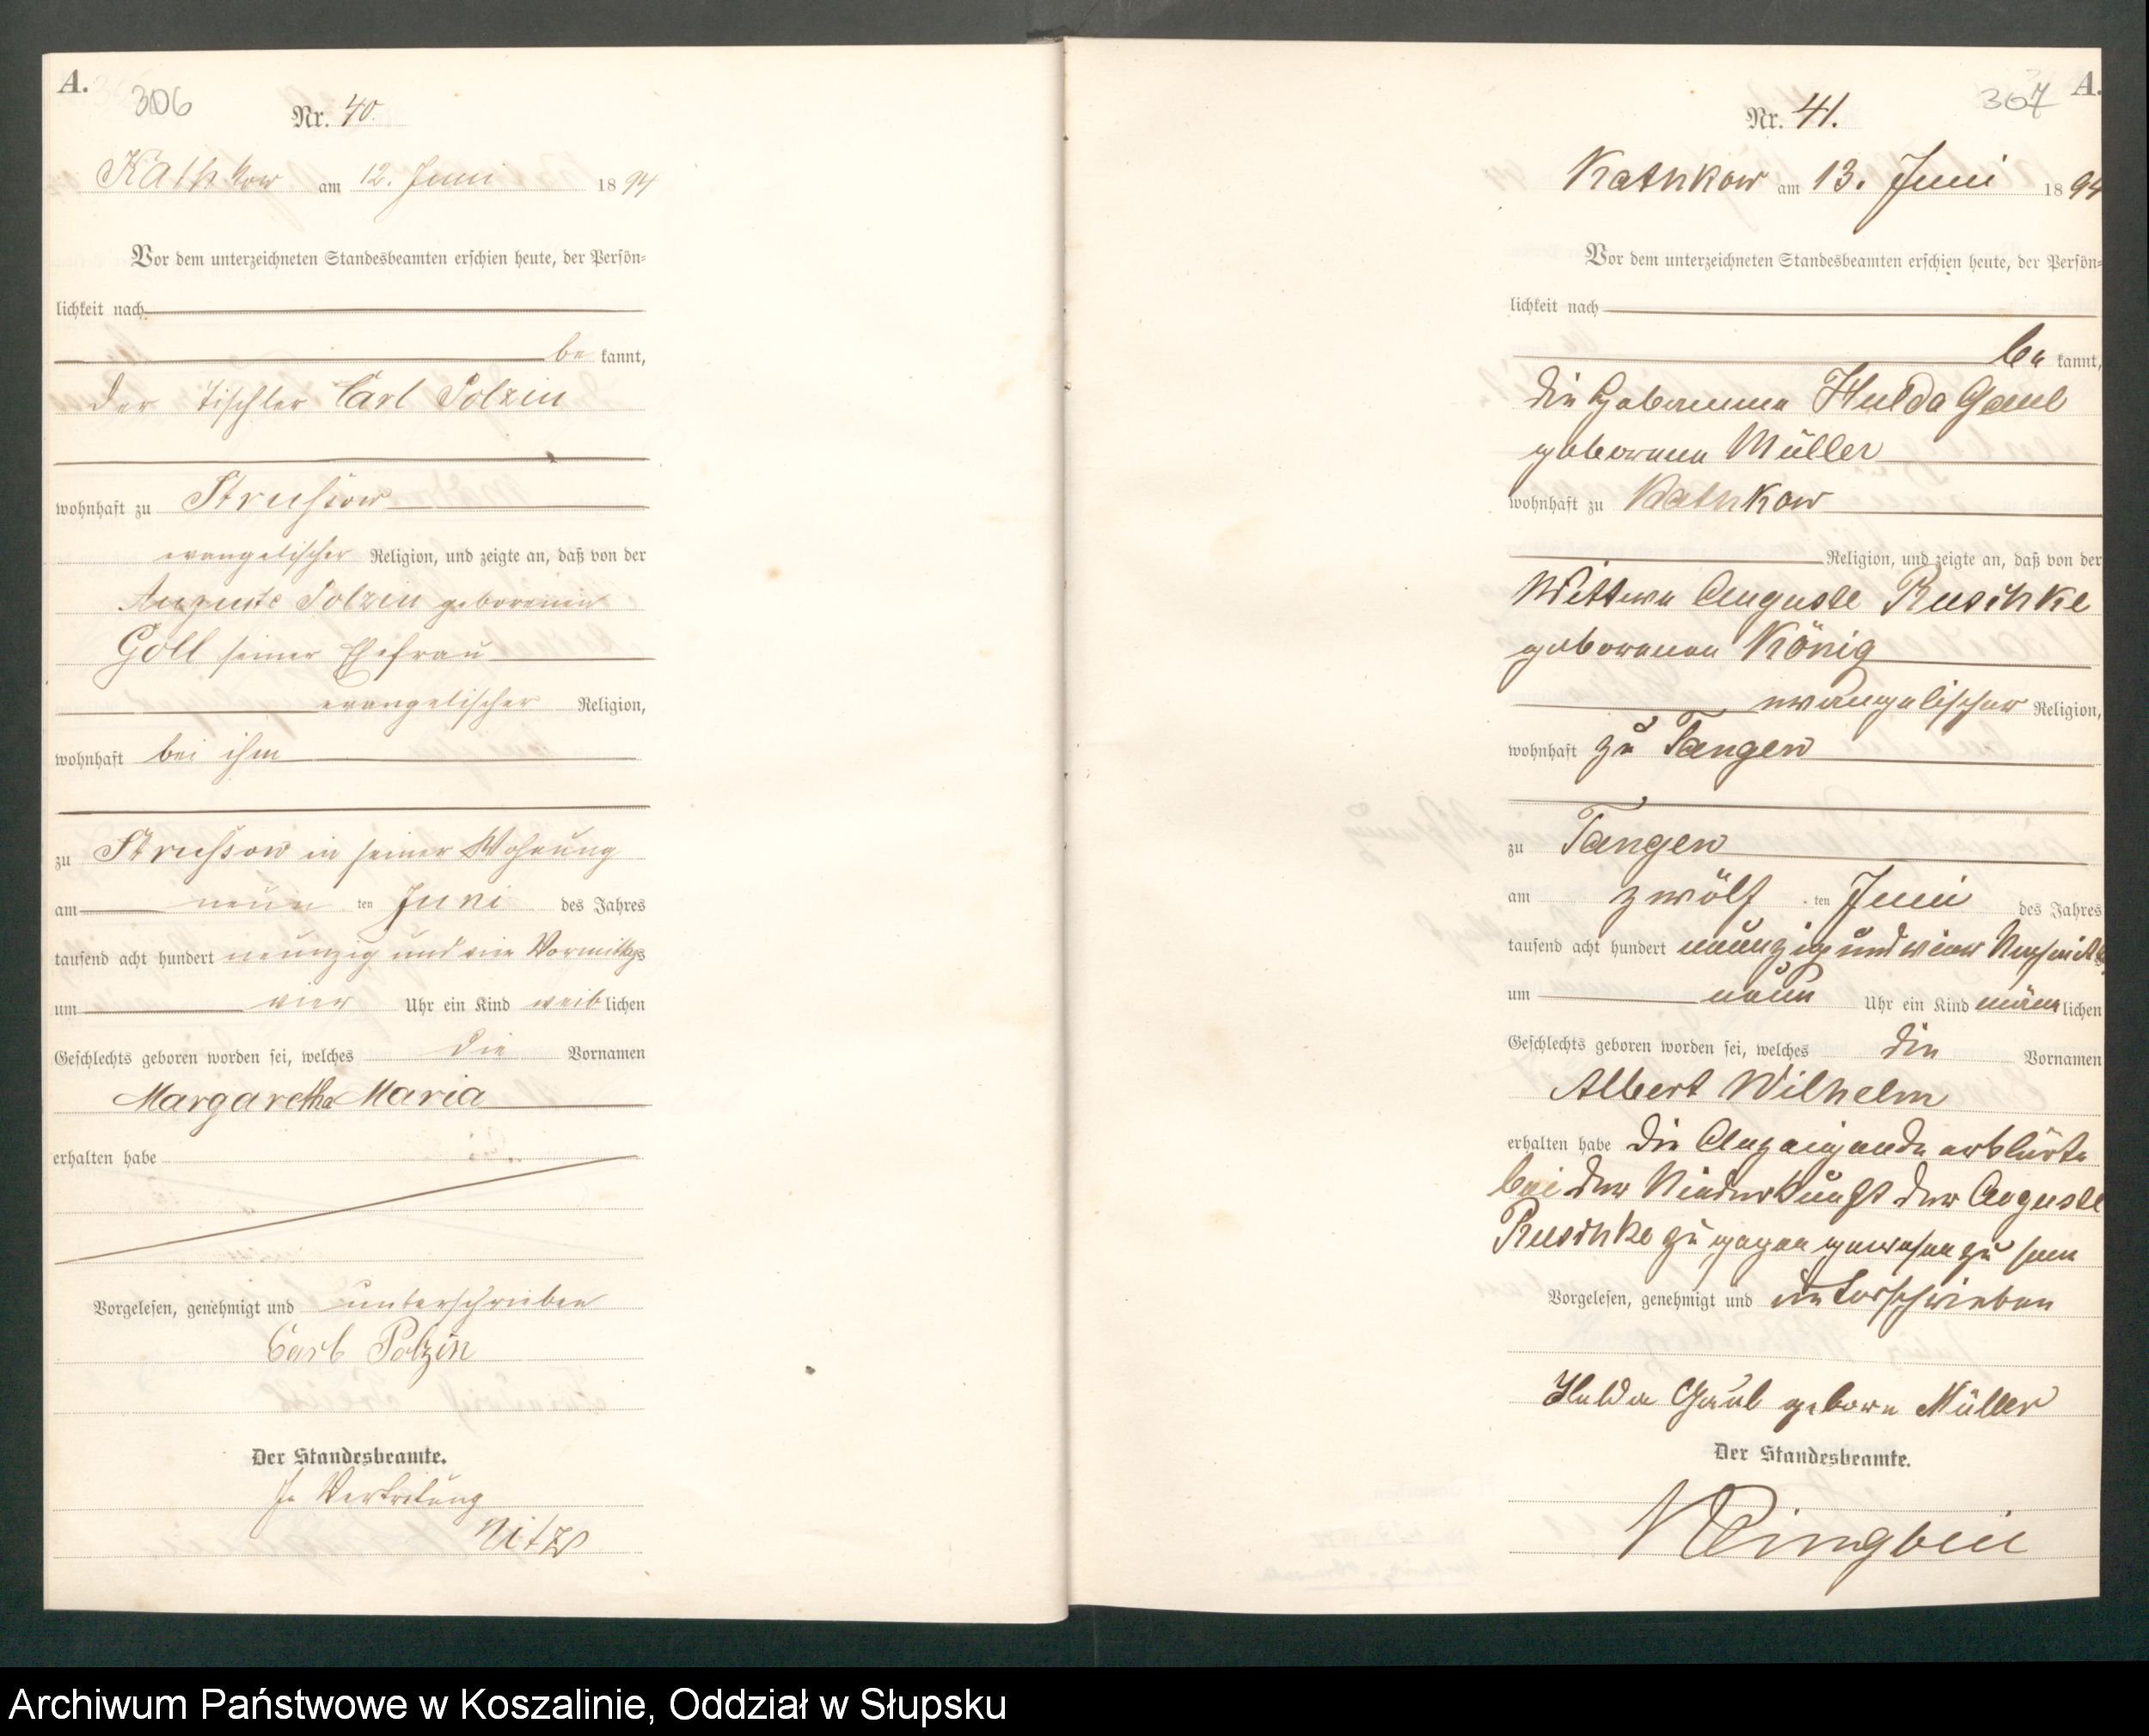 A.
306
Nr. 40.
Kathkow am 12. Juni 1894
Vor dem unterzeichneten Standesbeamten erschien heute, der Persön-
lichkeit nach
be kannt,
der Tischler Carl Polzin
wohnhaft zu Strussow
evangelischer Religion, und zeigte an, daß von der
Auguste Polzin geborenen
Goll seiner Ehefrau
evangelischer Religion,
wohnhaft bei ihm
zu Strussow in seiner Wohnung
am neun ten Juni des Jahres
tausend acht hundert neunzig und vier Vormittags
um vier Uhr ein Kind weiblichen
Geschlechts geboren worden sei, welches die Vornamen
Margaretha Maria
erhalten habe
Vorgelesen, genehmigt und unterschrieben
Carl Polzin
Der Standesbeamte.
In Vertretung
Nitz
A.
307
Nr. 41.
Kathkow am 13. Juni 1894
Vor dem unterzeichneten Standesbeamten erschien heute, der Persön-
lichkeit nach
be kannt,
die Hebamme Hulda Gaul
geborene Müller
wohnhaft zu Kathkow
Religion, und zeigte an, daß von der
Wittwe Auguste Ruschke
geborenen König
evangelischer Religion,
wohnhaft zu Tangen
zu Tangen
am zwölf ten Juni des Jahres
tausend acht hundert neunzig und vier Nachmittags
um neun Uhr ein Kind männlichen
Geschlechts geboren worden sei, welches die Vornamen
Albert Wilhelm
erhalten habe die Anzeigende erklärte
bei der Niederkunft der Auguste
Ruschke zugegen gewesen zu sein
Vorgelesen, genehmigt und unterschrieben
Hulda Gaul geborne Müller
Der Standesbeamte.
Archiwum Państwowe w Koszalinie, Oddział w Słupsku